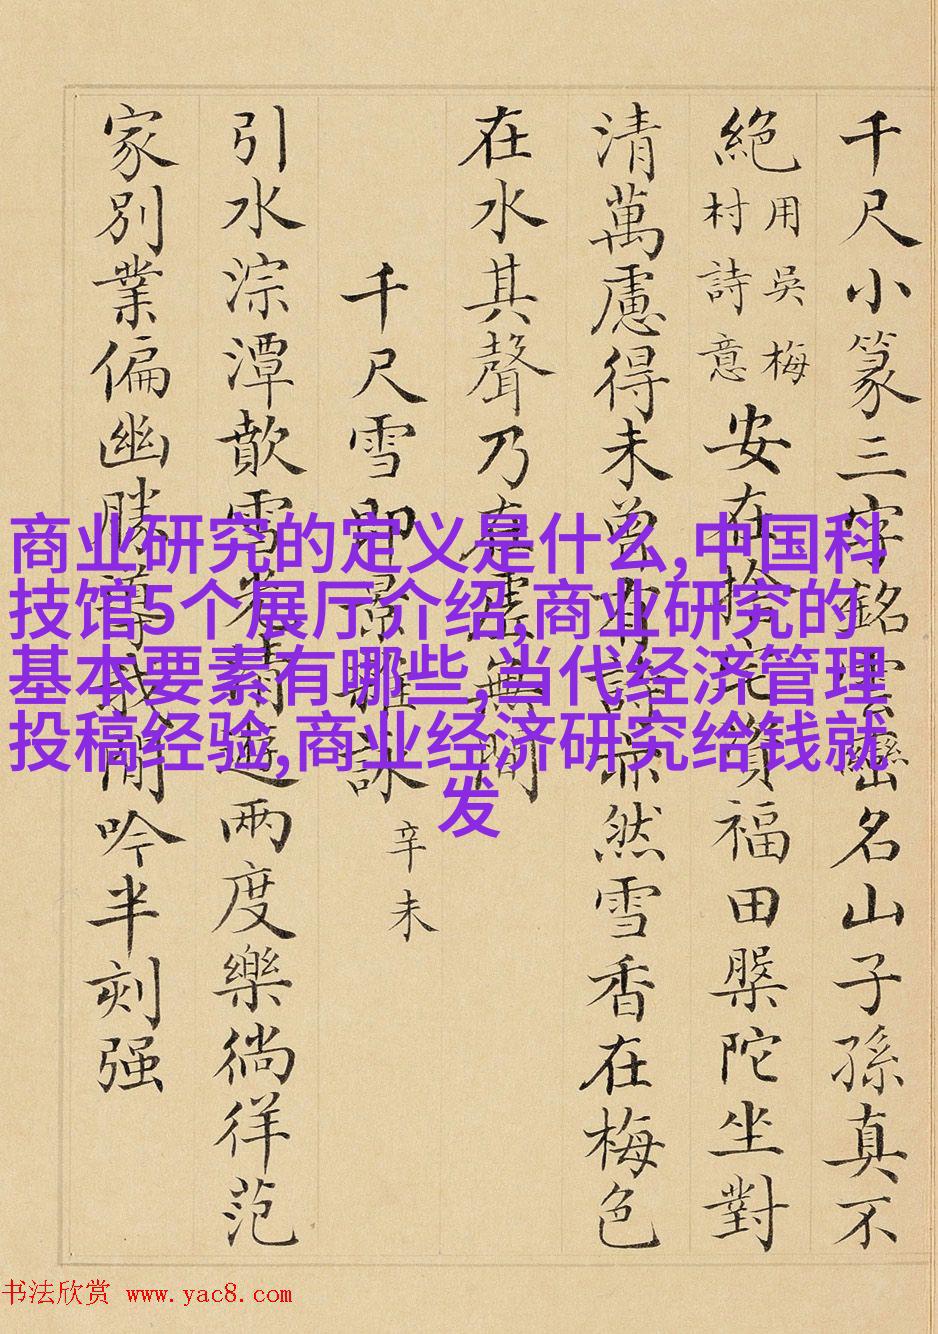 千尺小篆三字銘雲巒名山子孫真不
絶用吳梅村詩意安在捨宅資福田槃陀坐對
清萬慮得未曾有詩亦然雪香在梅色
在水其聲乃在虛無間
千尺雪即景雜詠 辛未
引水淙潭歕雪光清遊兩度樂徜徉范
家別業偏幽勝我閒吟半刻强
商业研究的定义是什么,中国科
技馆5个展厅介绍,商业研究的
基本要素有哪些,当代经济管理
投稿经验,商业经济研究给钱就
发
书法欣赏 www.yac8.com